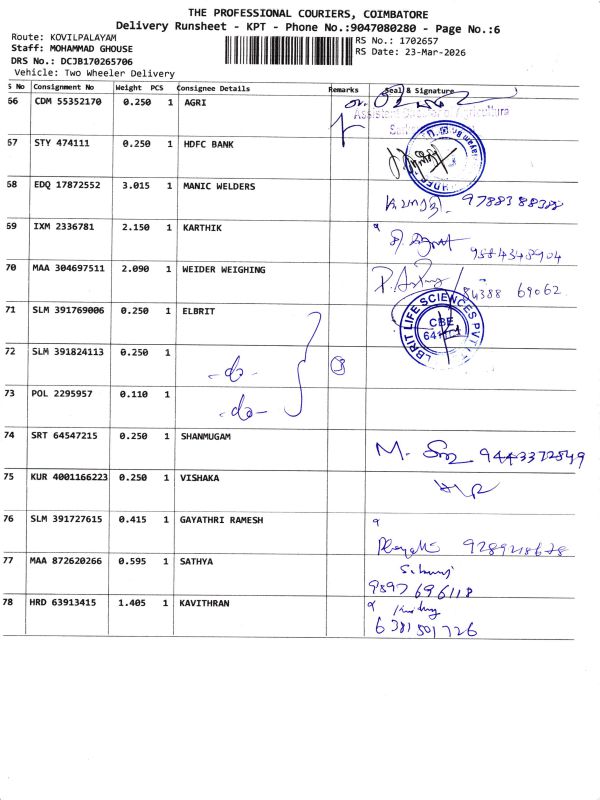 THE PROFESSIONAL COURIERS, COIMBATORE
Delivery Runsheet - KPT - Phone No.:9047080280 - Page No.:6
Route: KOVILPALAYAM
Staff: MOHAMMAD GHOUSE
DRS No.: DCJB170265706
Vehicle: Two Wheeler Delivery
RS No.: 1702657
RS Date: 23-Mar-2026
S No Consignment No Weight PCS Consignee Details Remarks Seal & Signature
66 CDM 55352170 0.250 1 AGRI
67 STY 474111 0.250 1 HDFC BANK
68 EDQ 17872552 3.015 1 MANIC WELDERS 9788388388
69 IXM 2336781 2.150 1 KARTHIK
70 MAA 304697511 2.090 1 WEIDER WEIGHING 84388 69062
71 SLM 391769006 0.250 1 ELBRIT
CBE
72 SLM 391824113 0.250 1 -do- 3
73 POL 2295957 0.110 1 -do-
74 SRT 64547215 0.250 1 SHANMUGAM M. 9443372849
75 KUR 4001166223 0.250 1 VISHAKA
76 SLM 391727615 0.415 1 GAYATHRI RAMESH 9289218678
77 MAA 872620266 0.595 1 SATHYA
9897696118
78 HRD 63913415 1.405 1 KAVITHRAN
6381501726